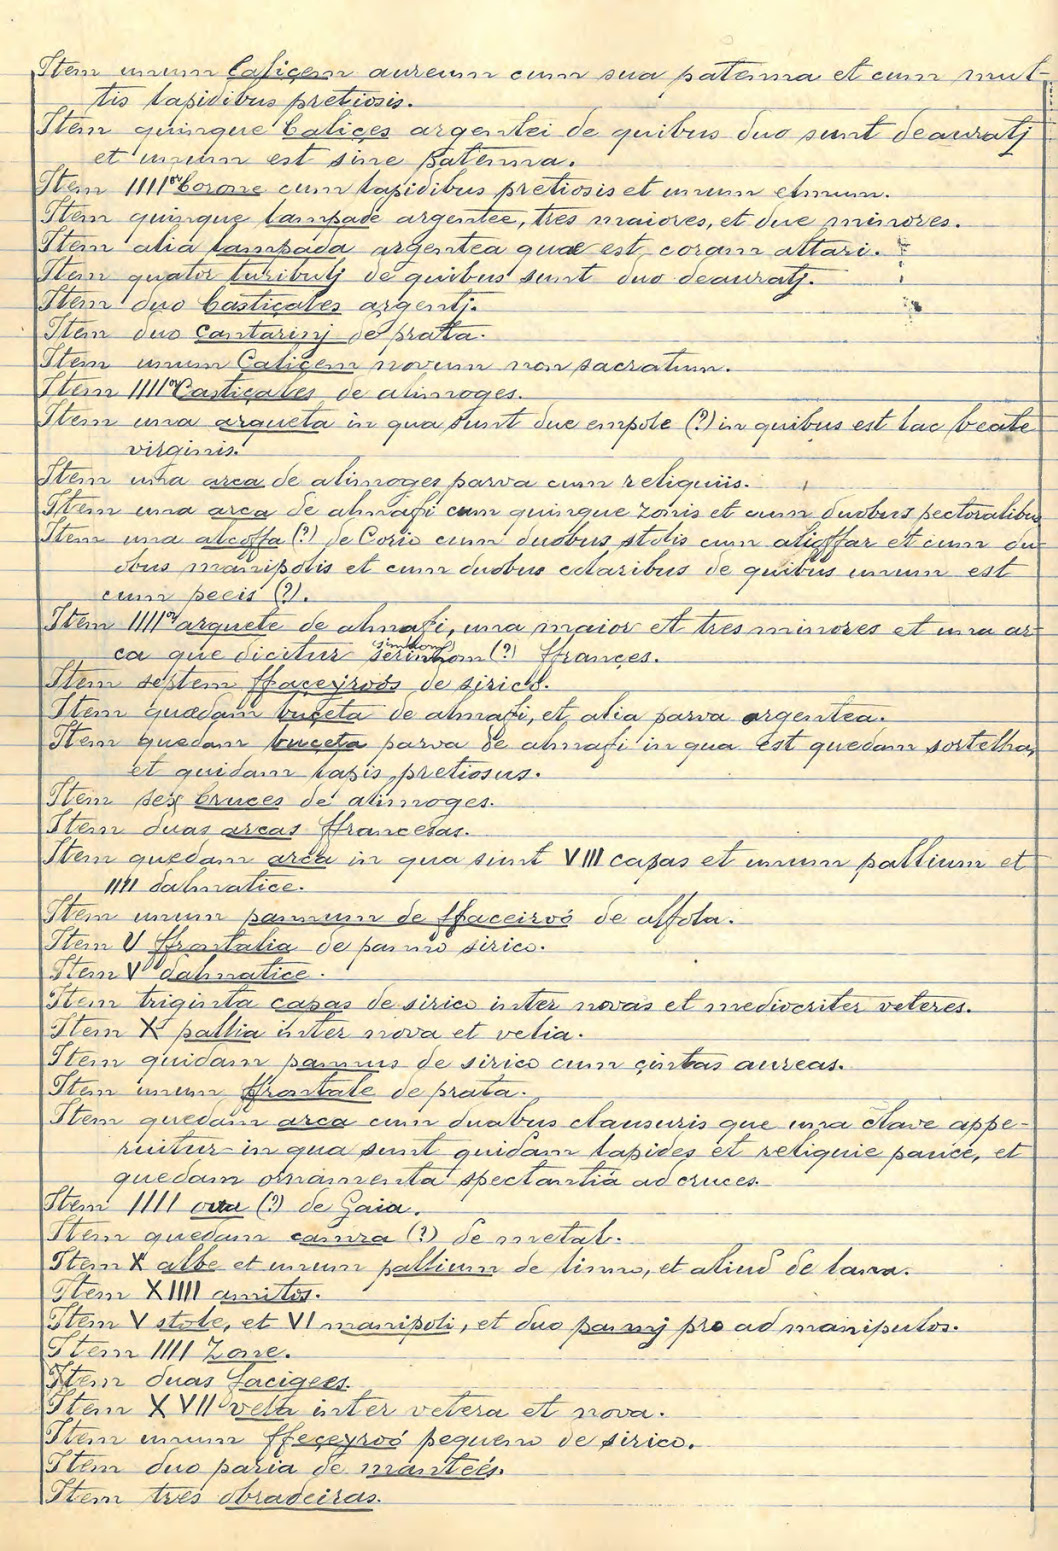 Item unum Caliçem aureum cum sua patenna et cum mul-
tis lapidibus pretiosis.
Item quinque Caliçes argentei de quibus duo sunt deauratj
et unum est sine patenna.
Item IIIIor Corone cum lapidibus pretiosis et unum elmum.
Item quinque lampade argentee, tres maiores, et due minores.
Item alia lampada argentea quæ est coram altari.
Item quator turibulj de quibus sunt duo deauratj.
Item duo Castiçales argentj.
Item duo cantarinj de prata.
Item unum Caliçem novum non sacratum.
Item IIIIor Castiçales de alimoges.
Item una arqueta in qua sunt due empole (?) in quibus est lac beate
virginis.
Item una arca de alimoges parva cum reliquiis.
Item una arca de almafi cum quinque zonis et cum duobus pectoralibus
Item una alcoffa (?) de Corio cum duobus stolis cum alioffar et cum du
obus manipolis et cum duobus colaribus de quibus unum est
cum pecis (?).
Item IIIIor arquete de almafi, una maior et tres minores et una ar-
ca que dicitur (?) ffrançes.
Item septem ffaçeyroos de sirico.
Item quædam buçeta de almafi, et alia parva argentea.
Item quedam buçeta parva de almafi in qua est quedam sortelha,
et quidam lapis pretiosus.
Item sex Cruces de alimoges.
Item duas arcas ffrancesas.
Item quedam arca in qua sunt VIII capas et unum pallium et
IIII dalmatice.
Item unum pannum de ffaceiroó de alfola.
Item V ffrontalia de panno sirico.
Item V dalmatice.
Item triginta capas de sirico inter novas et mediocriter veteres.
Item X pallia inter nova et velia.
Item quidam pannus de sirico cum çintas aureas.
Item unum ffrontale de prata.
Item quedam arca cum duabus clausuris que una clave appe-
ruitur in qua sunt quidam lapides et reliquie pauce, et
quedam ornamenta spectantia ad cruces.
Item IIII ova (?) de Gaia.
Item quedam camra (?) de metal.
Item X albe et unum pallium de linno, et aliud de lana.
Item XIIII amitos.
Item V stole, et VI manipoli, et duo pannj pro ad manipulos.
Item IIII Zone.
Item duas façigees.
Item XVII vela inter vetera et nova.
Item unum ffeçeyroó pequeno de sirico.
Item duo paria de manteés.
Item tres obradeiras.